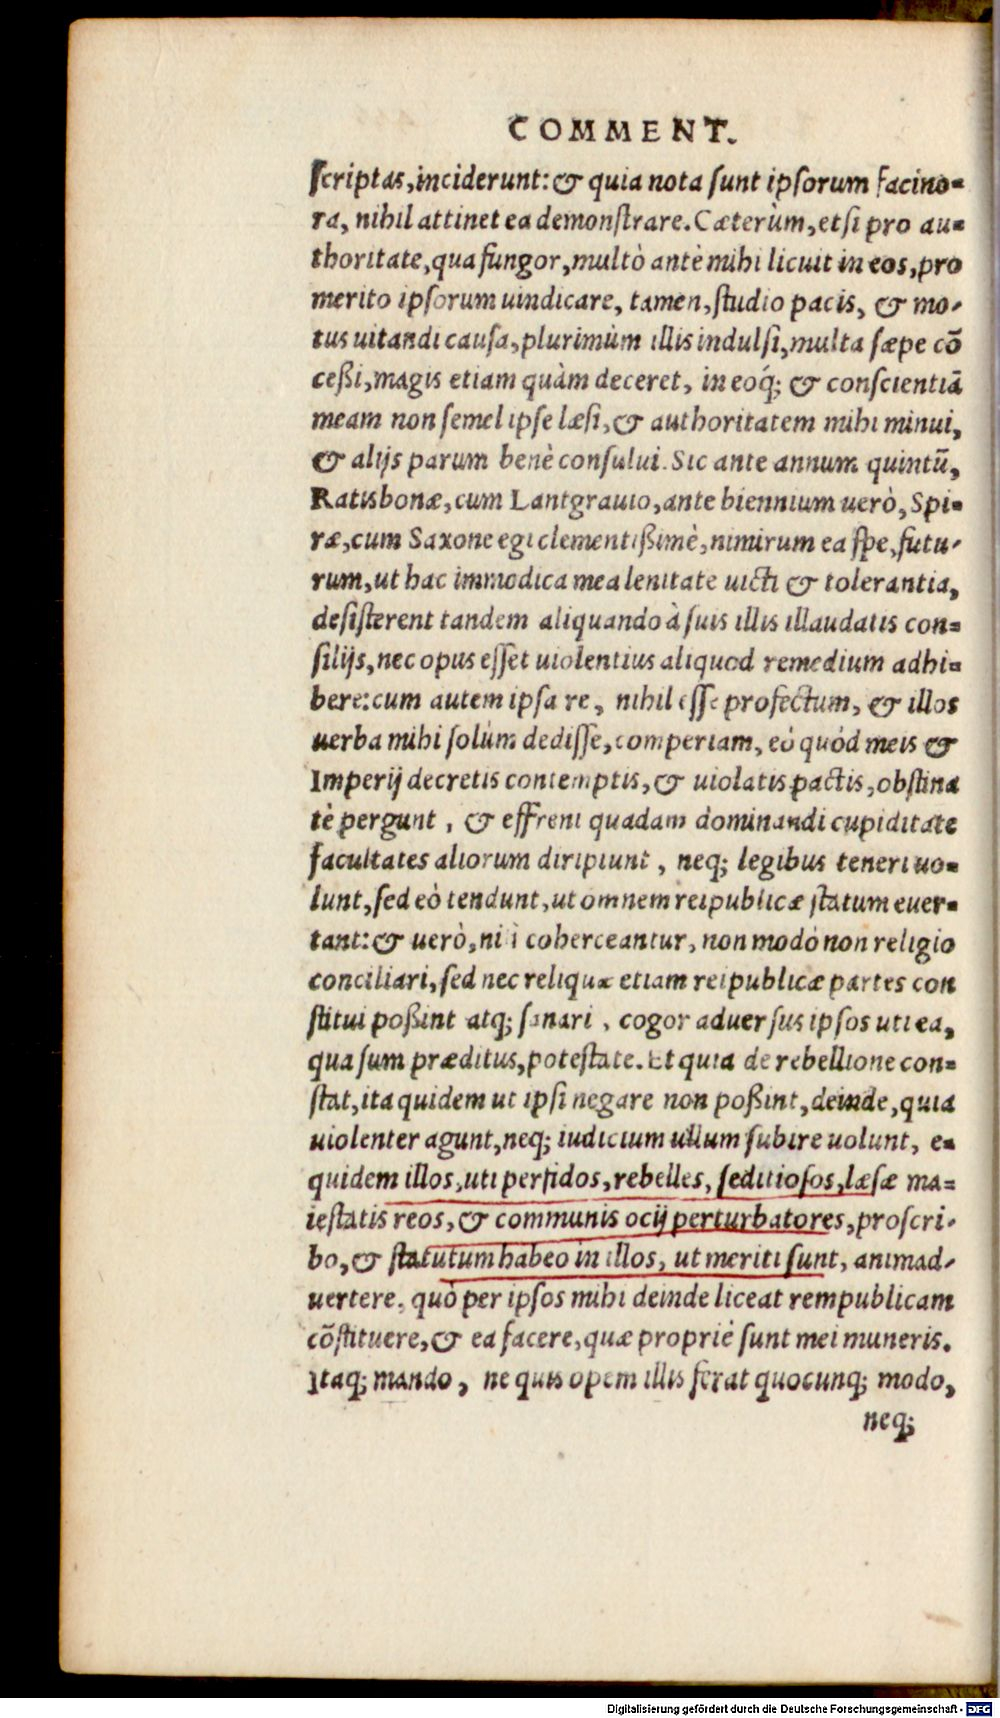 COMMENT.
ſcriptas, inciderunt: & quia nota ſunt ipſorum facino-
ra, nihil attinet ea demonſtrare. Cæterùm, etſi pro au-
thoritate, qua fungor, multò antè mihi licuit in eos, pro
merito ipſorum uindicare, tamen, ſtudio pacis, & mo-
tus uitandi cauſa, plurimùm illis indulſi, multa ſæpe cõ
ceßi, magis etiam quàm deceret, in eoq́; & conſcientiã
meam non ſemel ipſe læſi, & authoritatem mihi minui,
& alijs parum benè conſului. Sic ante annum quintũ,
Ratisbonæ, cum Lantgrauio, ante biennium uerò, Spi-
ræ, cum Saxone egi clementißimè, nimirum ea ſpe, futu-
rum, ut hac immodica mea lenitate uicti & tolerantia,
deſiſterent tandem aliquando à ſuis illis illaudatis con-
ſilijs, nec opus eſſet uiolentius aliquod remedium adhi-
bere: cum autem ipſa re, nihil eſſe profectum, & illos
uerba mihi ſolùm dediſſe, comperiam, eò quòd meis &
Imperij decretis contemptis, & uiolatis pactis, obſtina
tè pergunt, & effreni quadam dominandi cupiditate
facultates aliorum diripiunt, neq; legibus teneri uo-
lunt, ſed eò tendunt, ut omnem reipublicæ ſtatum euer-
tant: & uerò, niſi coherceantur, non modò non religio
conciliari, ſed nec reliquæ etiam reipublicæ partes con
ſtitui poßint atq; ſanari, cogor aduerſus ipſos uti ea,
qua ſum præditus, poteſtate. Et quia de rebellione con-
ſtat, ita quidem ut ipſi negare non poßint, deinde, quia
uiolenter agunt, neq; iudicium ullum ſubire uolunt, e-
quidem illos, uti perfidos, rebelles, ſeditioſos, læſæ ma-
ieſtatis reos, & communis ocij perturbatores, proſcri-
bo, & ſtatutum habeo in illos, ut meriti ſunt, animad-
uertere, quò per ipſos mihi deinde liceat rempublicam
cõſtituere, & ea facere, quæ propriè ſunt mei muneris.
Itaq; mando, ne quis opem illis ferat quocunq; modo,
neq;
Digitalisierung gefördert durch die Deutsche Forschungsgemeinschaft - DFG